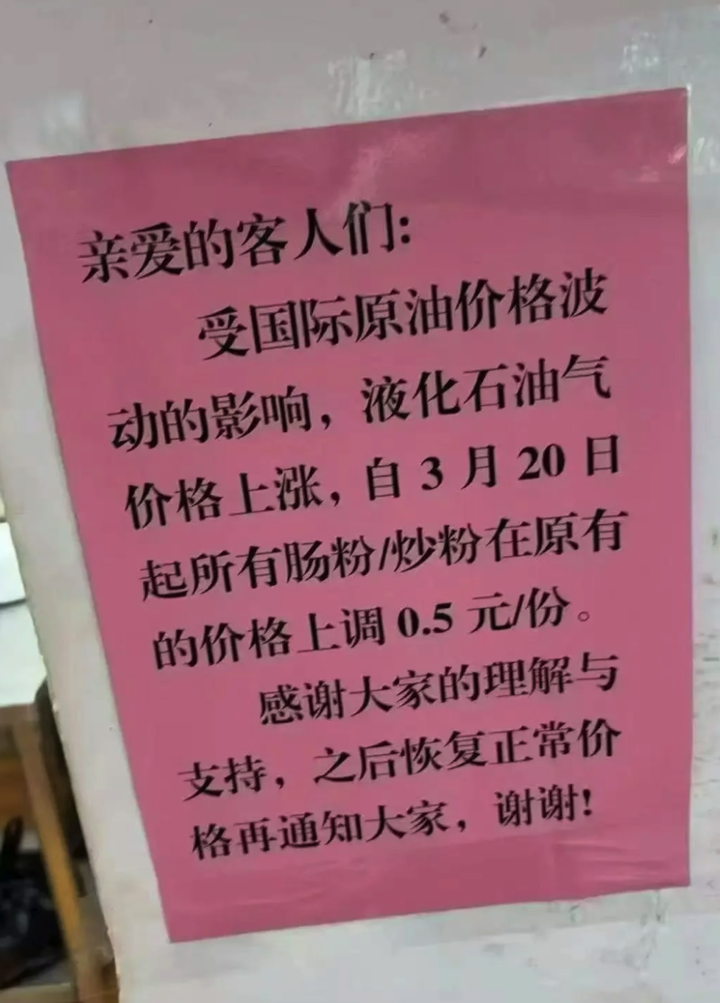 亲爱的客人们:
受国际原油价格波
动的影响，液化石油气
价格上涨，自 3 月 20 日
起所有肠粉/炒粉在原有
的价格上调 0.5 元/份。
感谢大家的理解与
支持，之后恢复正常价
格再通知大家，谢谢!